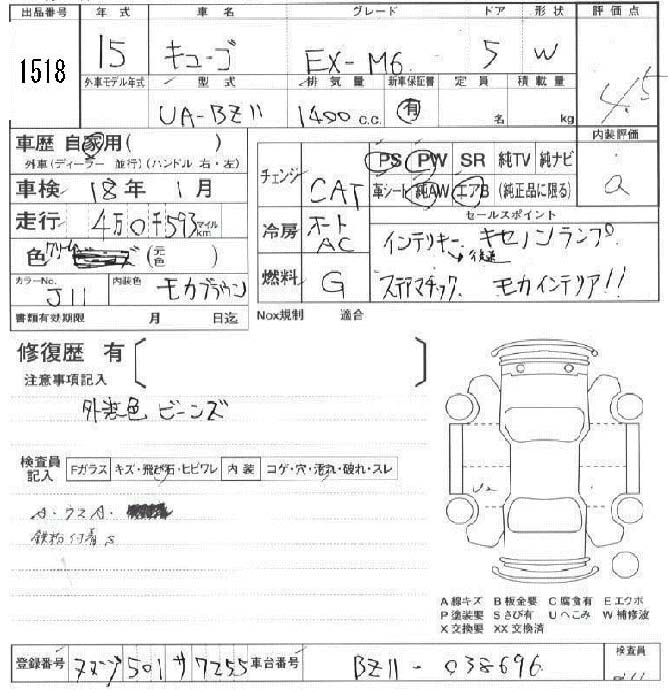 出品番号 年式 車名 グレード ドア 形状 評価点
1518 15 キューブ EX-M6 5 W 4.5
外車モデル年式 型式 排気量 新車保証書 定員 積載量
UA-BZ11 1400 c.c. 有 名 kg
内装評価
a
車歴 自家用( )
外車(ディーラー 並行)(ハンドル 右・左)
車検 18年 1月
走行 4万0千593 マイル km
色 (元色 )
カラーNo. J11 内装色 モカブラウン
書類有効期限 月 日迄
チェンジ CAT
冷房 オートAC
燃料 G
PS PW SR 純TV 純ナビ
革シート 純AW エアB (純正品に限る)
セールスポイント
インテリキー キセノンランプ
後送
ステアマチック モカインテリア!!
Nox規制 適合
修復歴 有
注意事項記入
外装色 ビーンズ
検査員記入 Fガラス キズ・飛び石・ヒビワレ 内装 コゲ・穴・汚れ・破れ・スレ
鉄粉付着 S
A線キズ B板金要 C腐食有 Eエクボ
P塗装要 Sさび有 Uへこみ W補修波
X交換要 XX交換済
登録番号 501 サ 7255 車台番号 BZ11-038696 検査員